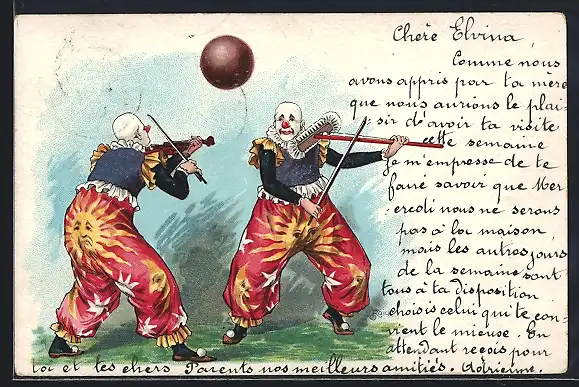 Chère Elvina,
Comme nous
avons appris par ta mère
que nous aurions le plai-
sir d'avoir ta visite
cette semaine
je m'empresse de te
faire savoir que Mer
credi nous ne serons
pas à la maison
mais les autres jours
de la semaine sont
tous à ta disposition
choisis celui qui te con-
vient le mieuse. En
attendant reçois pour
toi et tes chers Parents nos meilleurs amitiés. Adrienne.